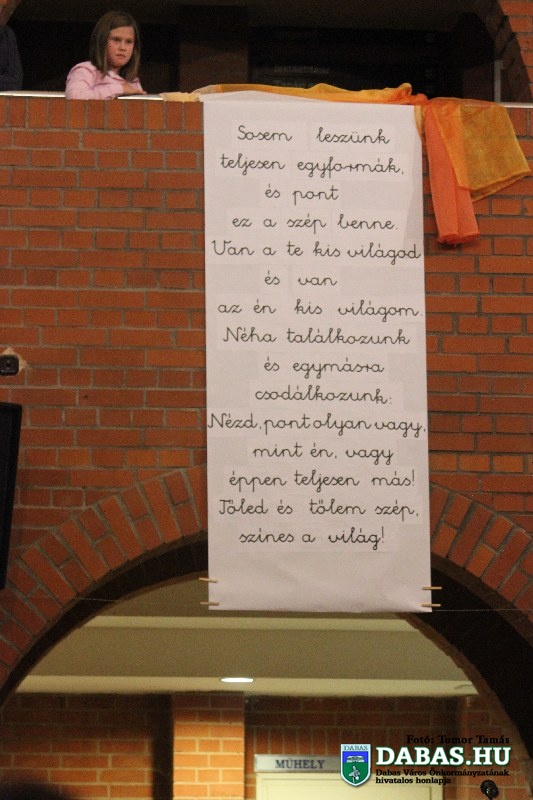 Sosem leszünk
teljesen egyformák,
és pont
ez a szép benne.
Van a te kis világod
és van
az én kis világom.
Néha találkozunk
és egymásra
csodálkozunk:
Nézd, pont olyan vagy,
mint én, vagy
éppen teljesen más!
Tőled és tőlem szép,
színes a világ!
MŰHELY
Fotó: Tomor Tamás
DABAS
DABAS.HU
Dabas Város Önkormányzatának
hivatalos honlapja